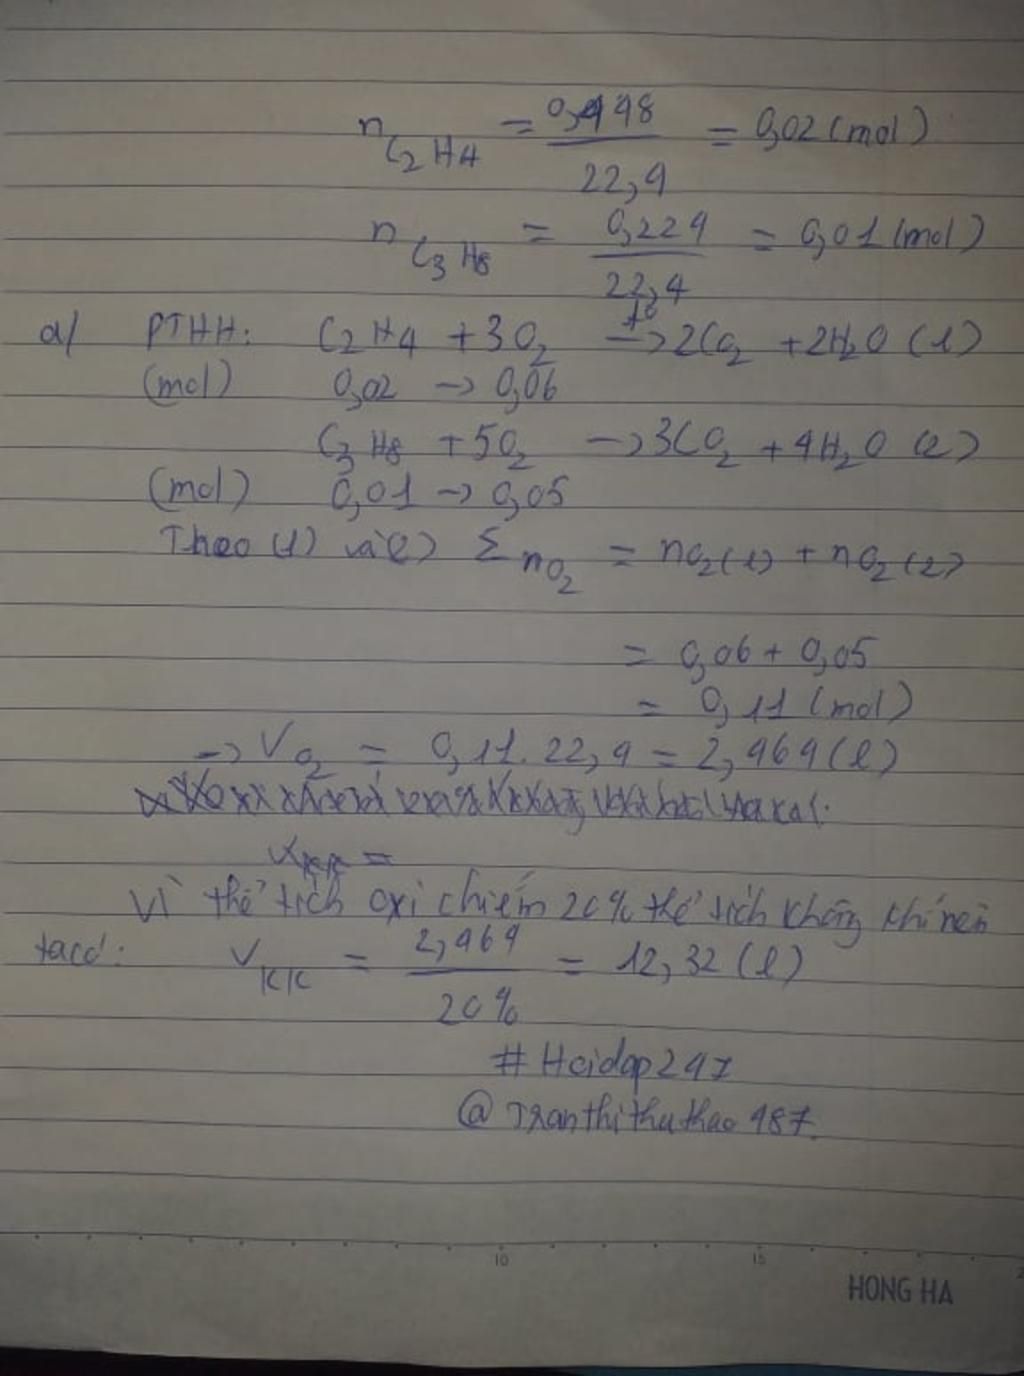 nC2H4 = 0,448/22,4 = 0,02 (mol)
nC3H8 = 0,224/22,4 = 0,01 (mol)
a/ PTHH: C2H4 + 3O2 -t°-> 2CO2 + 2H2O (1)
(mol) 0,02 -> 0,06
C3H8 + 5O2 -> 3CO2 + 4H2O (2)
(mol) 0,01 -> 0,05
Theo (1) và (2) Σ nO2 = nO2(1) + nO2(2)
= 0,06 + 0,05
= 0,11 (mol)
-> VO2 = 0,11.22,4 = 2,464 (l)
VKK =
Vì thể tích oxi chiếm 20% thể tích không khí nên
ta có: VKK = 2,464/20% = 12,32 (l)
#Hoidap247
@Tranthithuthao487.
10 15
HONG HA